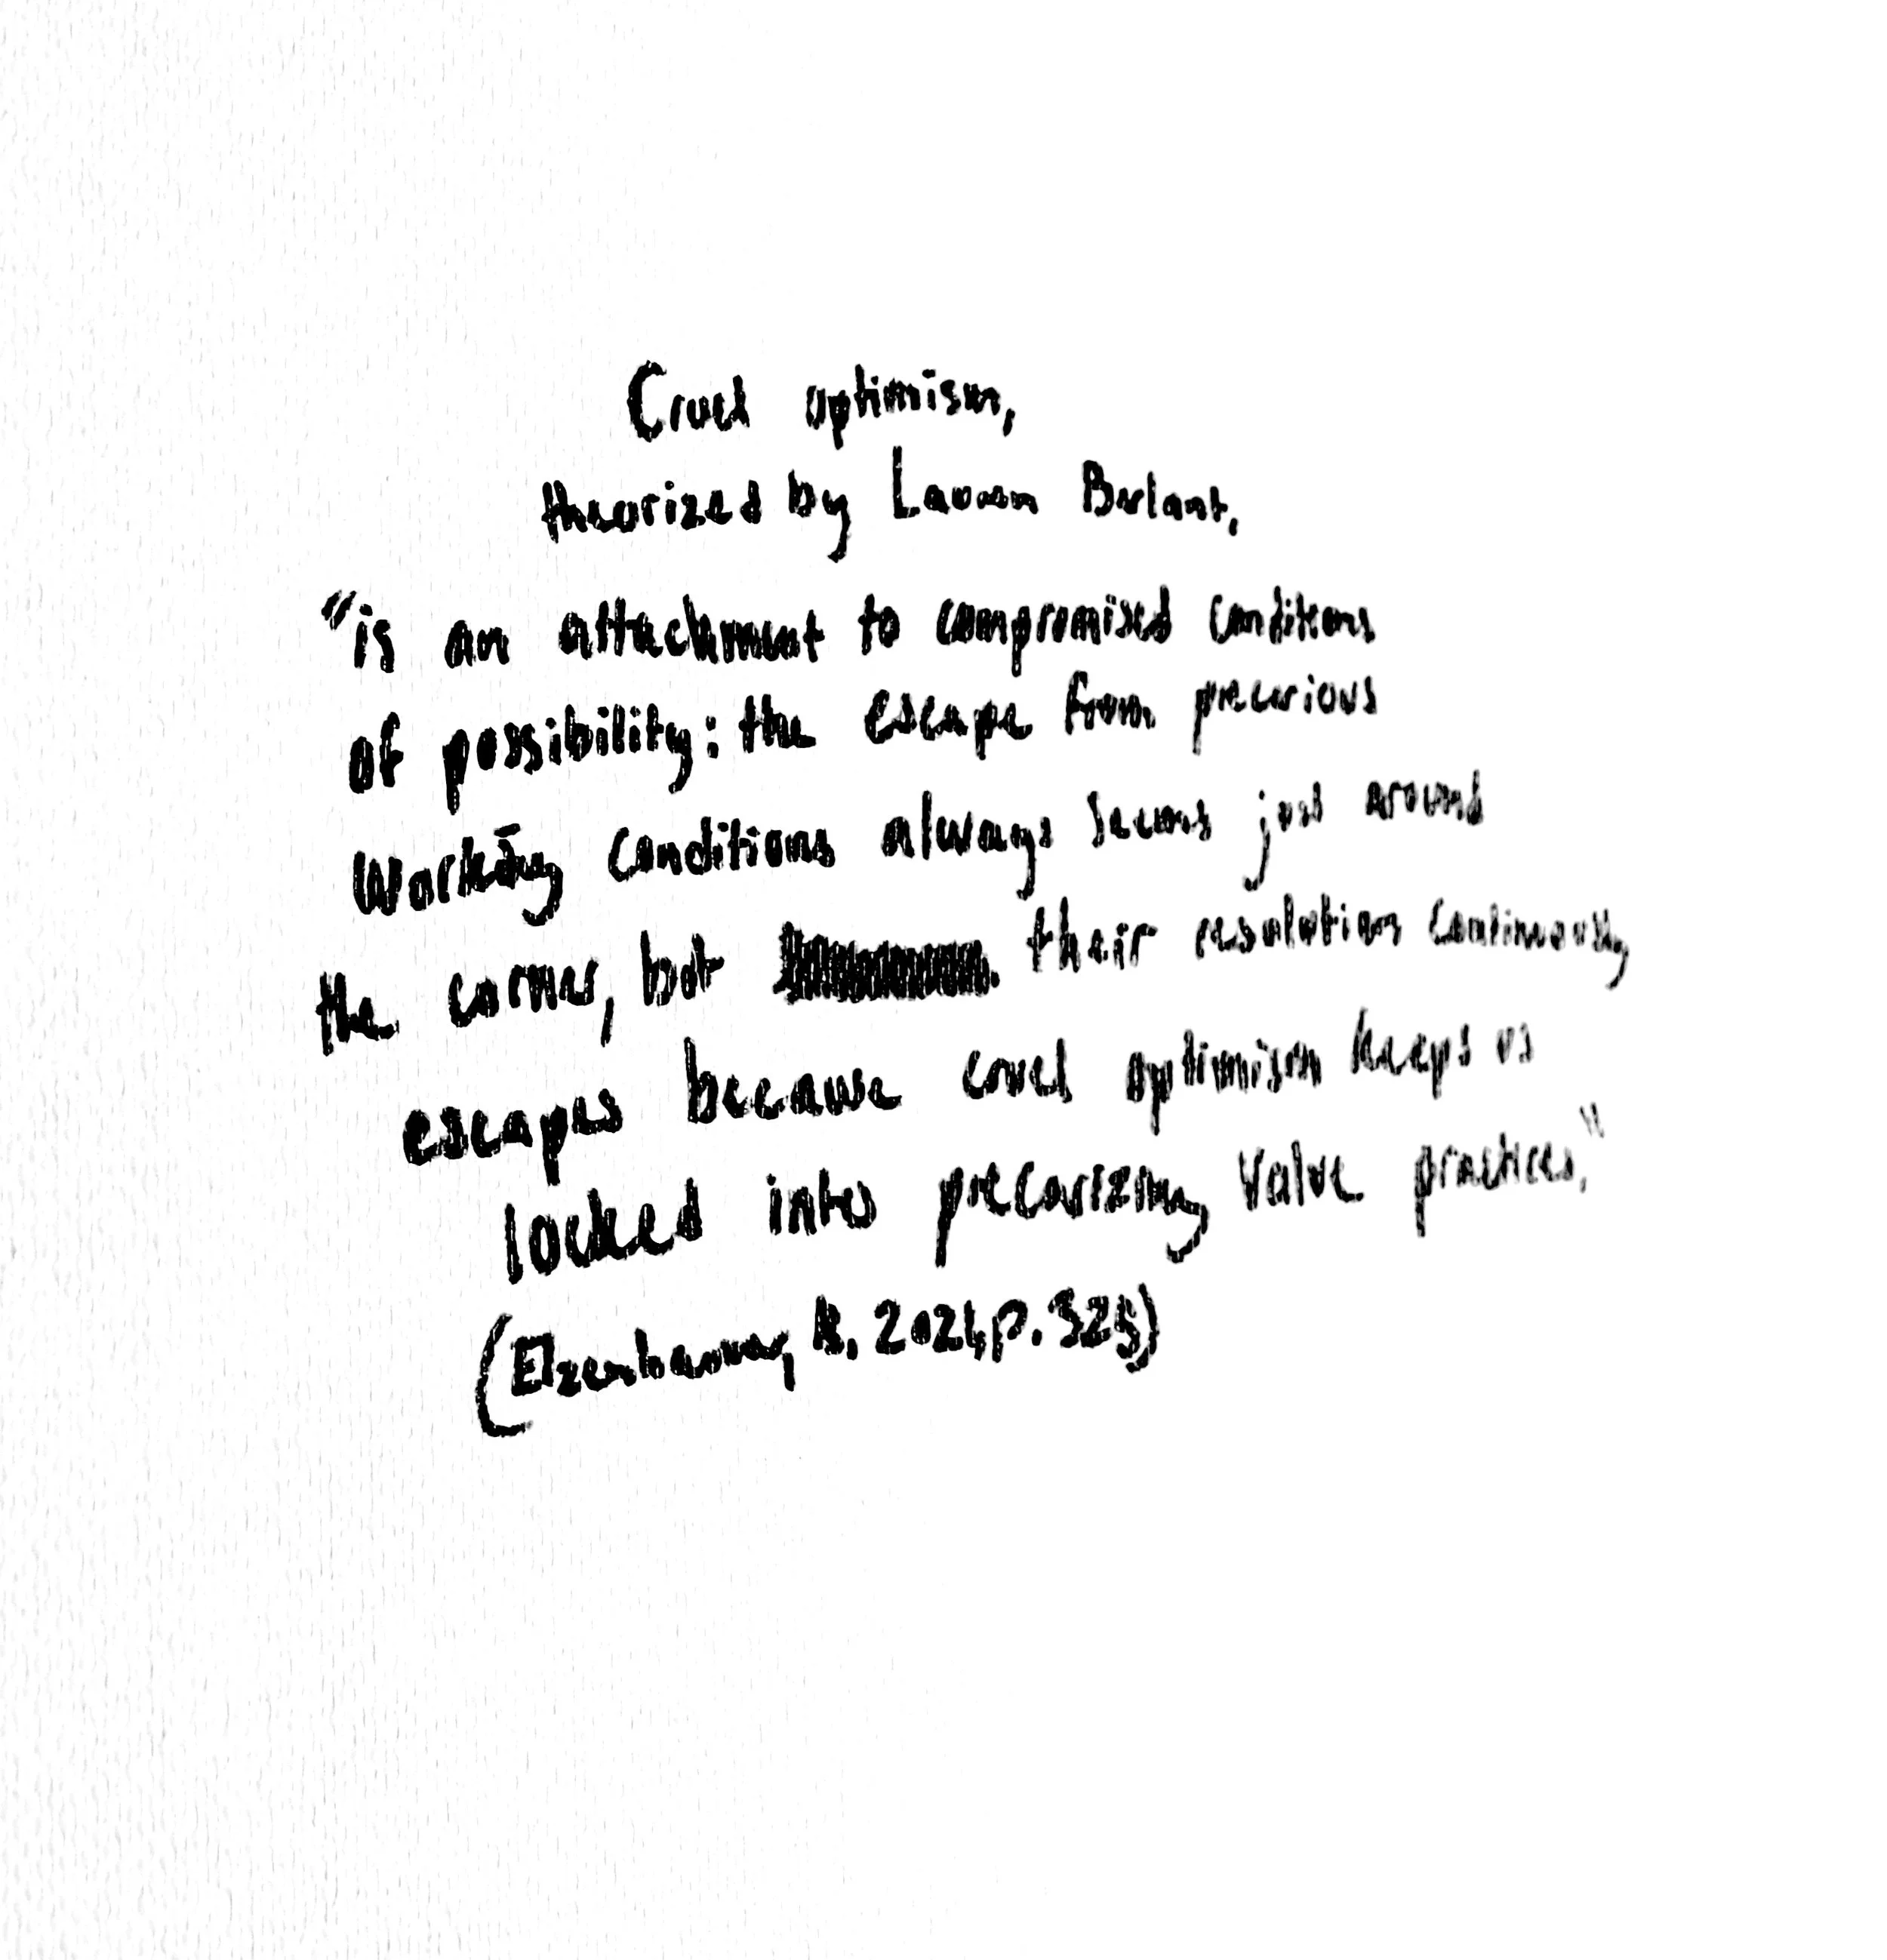 Cruel optimism,
theorized by Lauren Berlant,
"is an attachment to compromised conditions
of possibility: the escape from precarious
working conditions always seems just around
the corner, but their resolution continuously
escapes because cruel optimism keeps us
locked into precarizing value practices."
(Elzenbaumer, B. 2021, p. 325)